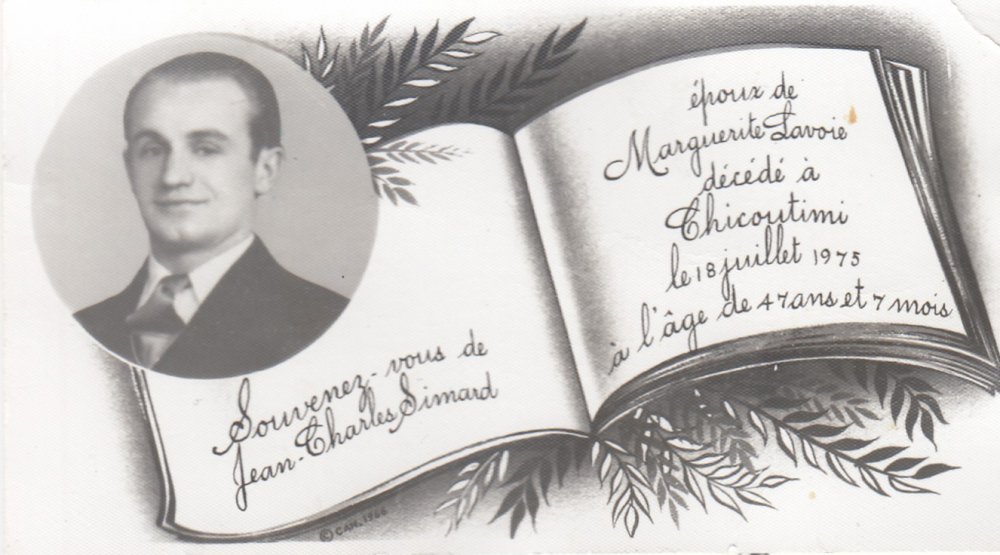 Souvenez-vous de
Jean-Charles Simard
© CAN. 1966
époux de
Marguerite Lavoie
décédé à
Chicoutimi
le 18 juillet 1975
à l'âge de 47 ans et 7 mois